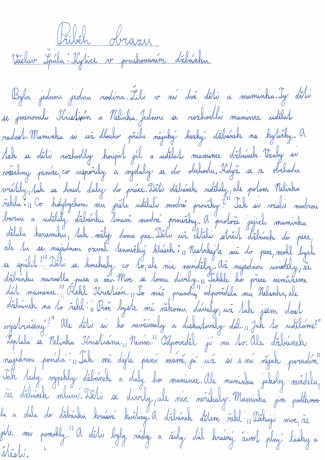 Příběh obrazu
Václav Špála: Kytice v pruhovaném džbánku
Byla jednou jedna rodina. Žili v ní dvě děti a maminka. Ty děti
se jmenovali Kristián a Nelinka. Jednou se rozhodli mamince udělat
radost. Maminka si už dlouho přála nějaký hezký džbánek na kytičky. A
tak se děti rozhodly koupit jíl a udělat mamince džbánek. Vzaly si
všechny peníze, co uspořily a vydaly se do obchodu. Když se z obchodu
vrátily, tak se hned daly do práce. Děti džbánek udělaly, ale potom Nelinka
řekla: " Co kdybychom mu ještě udělali modré proužky?" Tak si vzali modrou
barvu a udělaly džbánku modré proužky. A protože jejich maminka
dělala keramiku, tak měly doma pec. Děti už chtěli strčit džbánek do pece,
ale tu se najednou ozval tenoučký hlásek: " Nestrkejte mě do pece, mohl bych
se spálit!" Děti se koukaly co to, ale nic neviděly. Až najednou uviděly, že
džbánku narostla pusa a oči. Moc se tomu divily. " Takhle ho přece nemůžeme
dát mamince." Řekl Kristián. " To máš pravdu" odpověděla mu Nelinka, ale
džbánek na to řekl: " Proč byste mě nemohli darovat, už tak jsem dost
vystrašený!" Ale děti si ho nevšímaly a diskutovaly dál. " Jak to uděláme?"
Zeptala se Nelinka Kristiána. " Nevím." Odpověděl jí na to. Ale džbánek
najednou povídá: " Tak mě dejte paní mámě, já už si s ní nějak poradím."
Tak tedy vypekly džbánek a daly ho mamince. Ale maminka jakoby nevěděla,
že džbánek mluví. Děti se divily, ale nic neříkaly. Maminka jim poděkova-
la a dala do džbánku krásné květiny. A džbánek dětem řekl " Děkuji moc, že
jste mi pomohly." A děti byly rády a žily dál krásný život plný lásky a
štěstí.